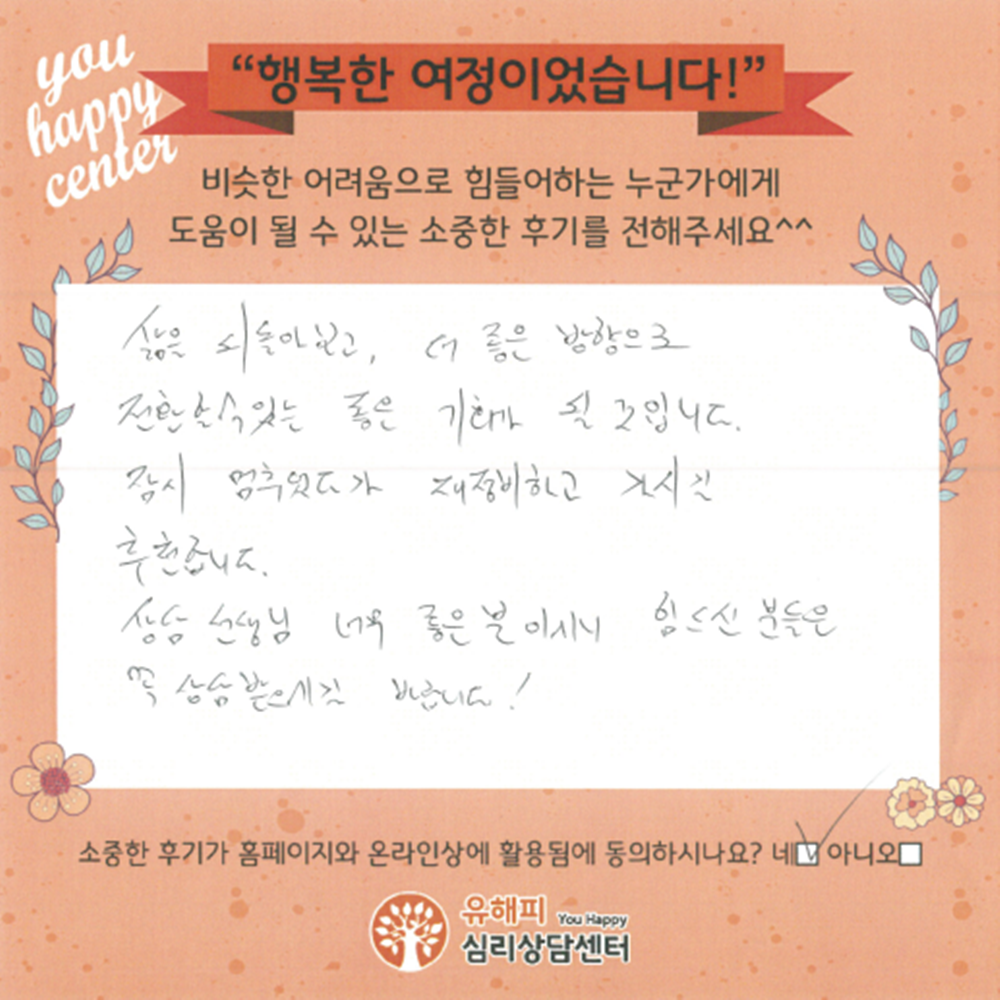 you
happy
center
“행복한 여정이었습니다!”
비슷한 어려움으로 힘들어하는 누군가에게
도움이 될 수 있는 소중한 후기를 전해주세요^^
삶을 뒤돌아보고, 더 좋은 방향으로
전환할수있는 좋은 기회가 될 것입니다.
잠시 멈추었다가 재정비하고 가시길
추천합니다.
상담 선생님 너무 좋은 분이시니 힘드신 분들은
꼭 상담 받으시길 바랍니다!
소중한 후기가 홈페이지와 온라인상에 활용됨에 동의하시나요? 네 아니오
유해피 You Happy
심리상담센터